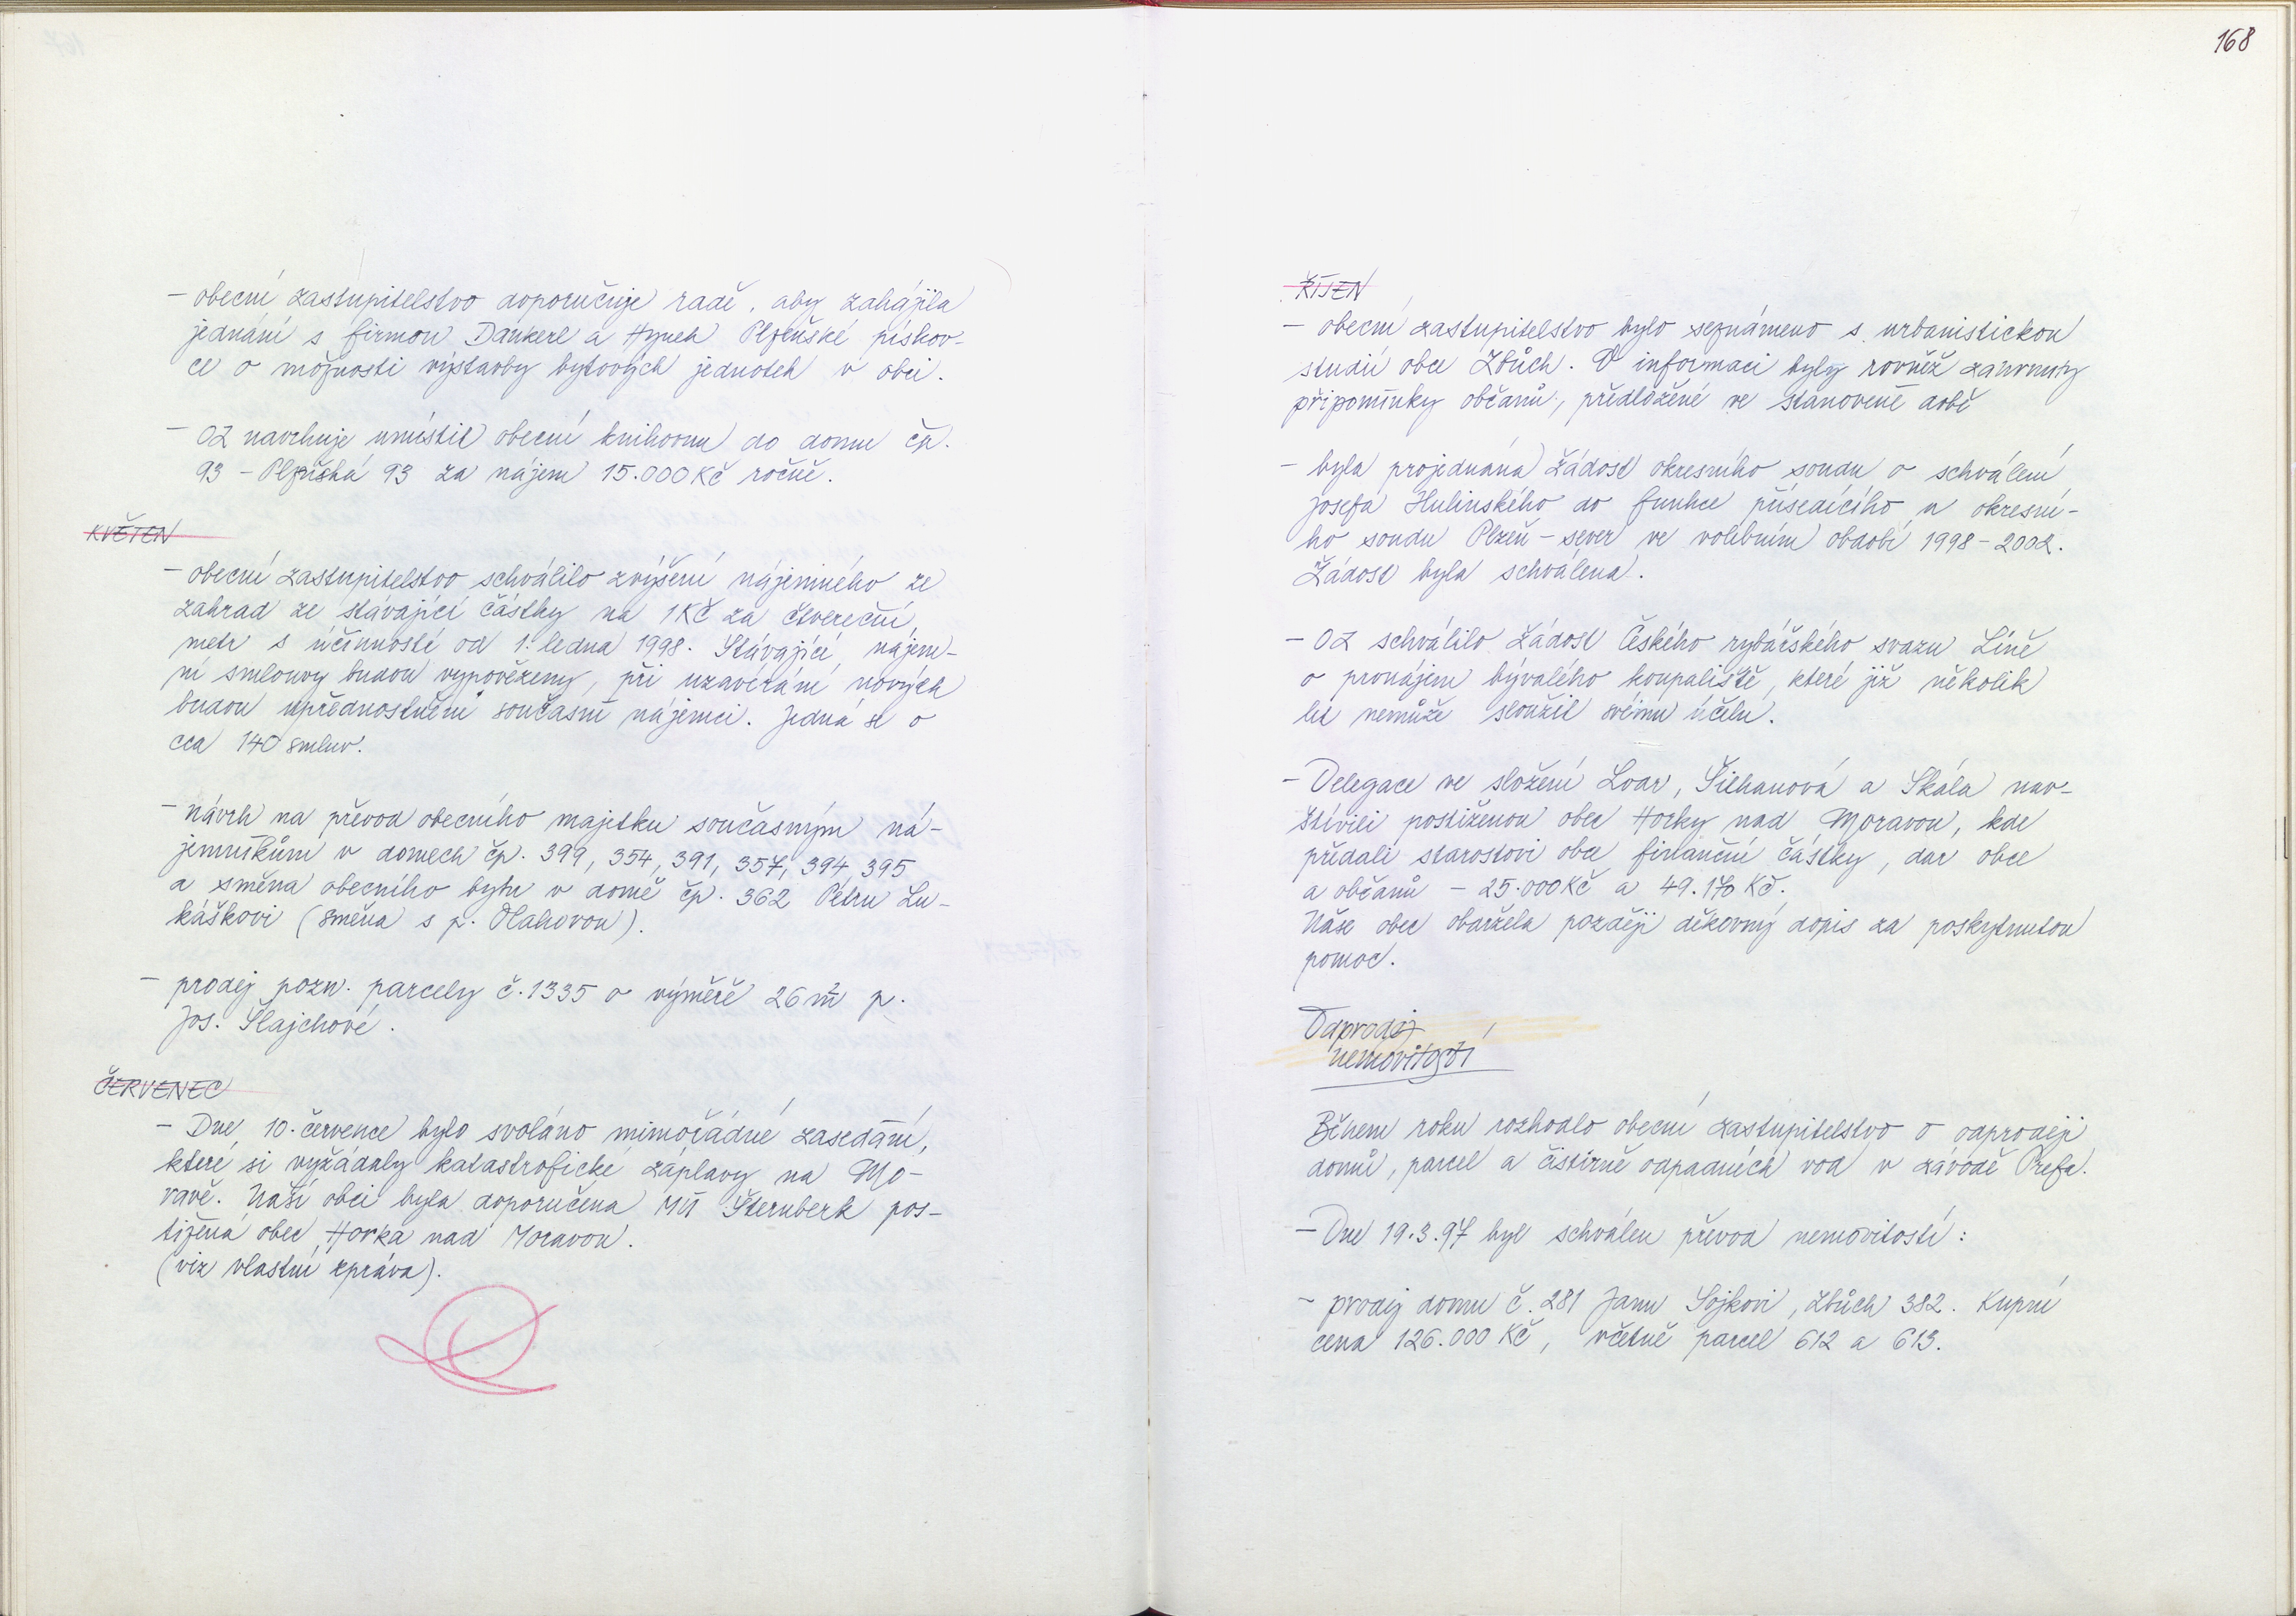 168
- obecní zastupitelstvo doporučuje radě, aby zahájila
jednání s firmou Dankerl a Hynek Plzeňské pískov-
ce o možnosti výstavby bytových jednotek v obci.
- OZ navrhuje umístit obecní knihovnu do domu čp.
93 - Plzeňská 93 za nájem 15.000 Kč ročně.
KVĚTEN
- obecní zastupitelstvo schválilo zvýšení nájemného ze
zahrad ze stávající částky na 1 Kč za čtvereční
metr s účinností od 1. ledna 1998. Stávající nájem-
ní smlouvy budou vypovězeny, při uzavírání nových
budou upřednostněni současní nájemci. Jedná se o
cca 140 smluv.
- návrh na převod obecního majetku současným ná-
jemníkům v domech čp. 399, 354, 391, 357, 394, 395
a směna obecního bytu v domě čp. 362 Petru Lu-
káškovi (směna s p. Vlahovou).
- prodej pozn. parcely č. 1335 o výměře 26 m² p.
Jos. Šlajchové.
ČERVENEC
- Dne 10. července bylo svoláno mimořádné zasedání,
které si vyžádaly katastrofické záplavy na Mo-
ravě. Naší obci byla doporučena MÚ Šternberk pos-
tižená obec Horka nad Moravou.
(viz vlastní zpráva).
ŘÍJEN
- obecní zastupitelstvo bylo seznámeno s urbanistickou
studií obce Zbůch. V informaci byly rovněž zahrnuty
připomínky občanů, předložené ve stanovené době
- byla projednána žádost okresního soudu o schválení
Josefa Hulinského do funkce přísedícího u okresní-
ho soudu Plzeň - sever ve volebním období 1998 - 2002.
Žádost byla schválena.
- OZ schválilo žádost Českého rybářského svazu Líně
o pronájem bývalého koupaliště, které již několik
let nemůže sloužit svému účelu.
- Delegace ve složení Loar, Šilhanová a Skála nav-
štívili postiženou obec Horky nad Moravou, kde
předali starostovi obce finanční částky, dar obce
a občanů - 25.000 Kč a 49.170 Kč.
Naše obec obdržela později děkovný dopis za poskytnutou
pomoc.
Odprodej
nemovitostí
Během roku rozhodlo obecní zastupitelstvo o odprodeji
domů, parcel a čistírně odpadních vod v závodě Prefa.
- Dne 19.3.97 byl schválen převod nemovitostí:
- prodej domu č. 281 Janu Sojkovi, Zbůch 382. Kupní
cena 126.000 Kč, včetně parcel 612 a 613.